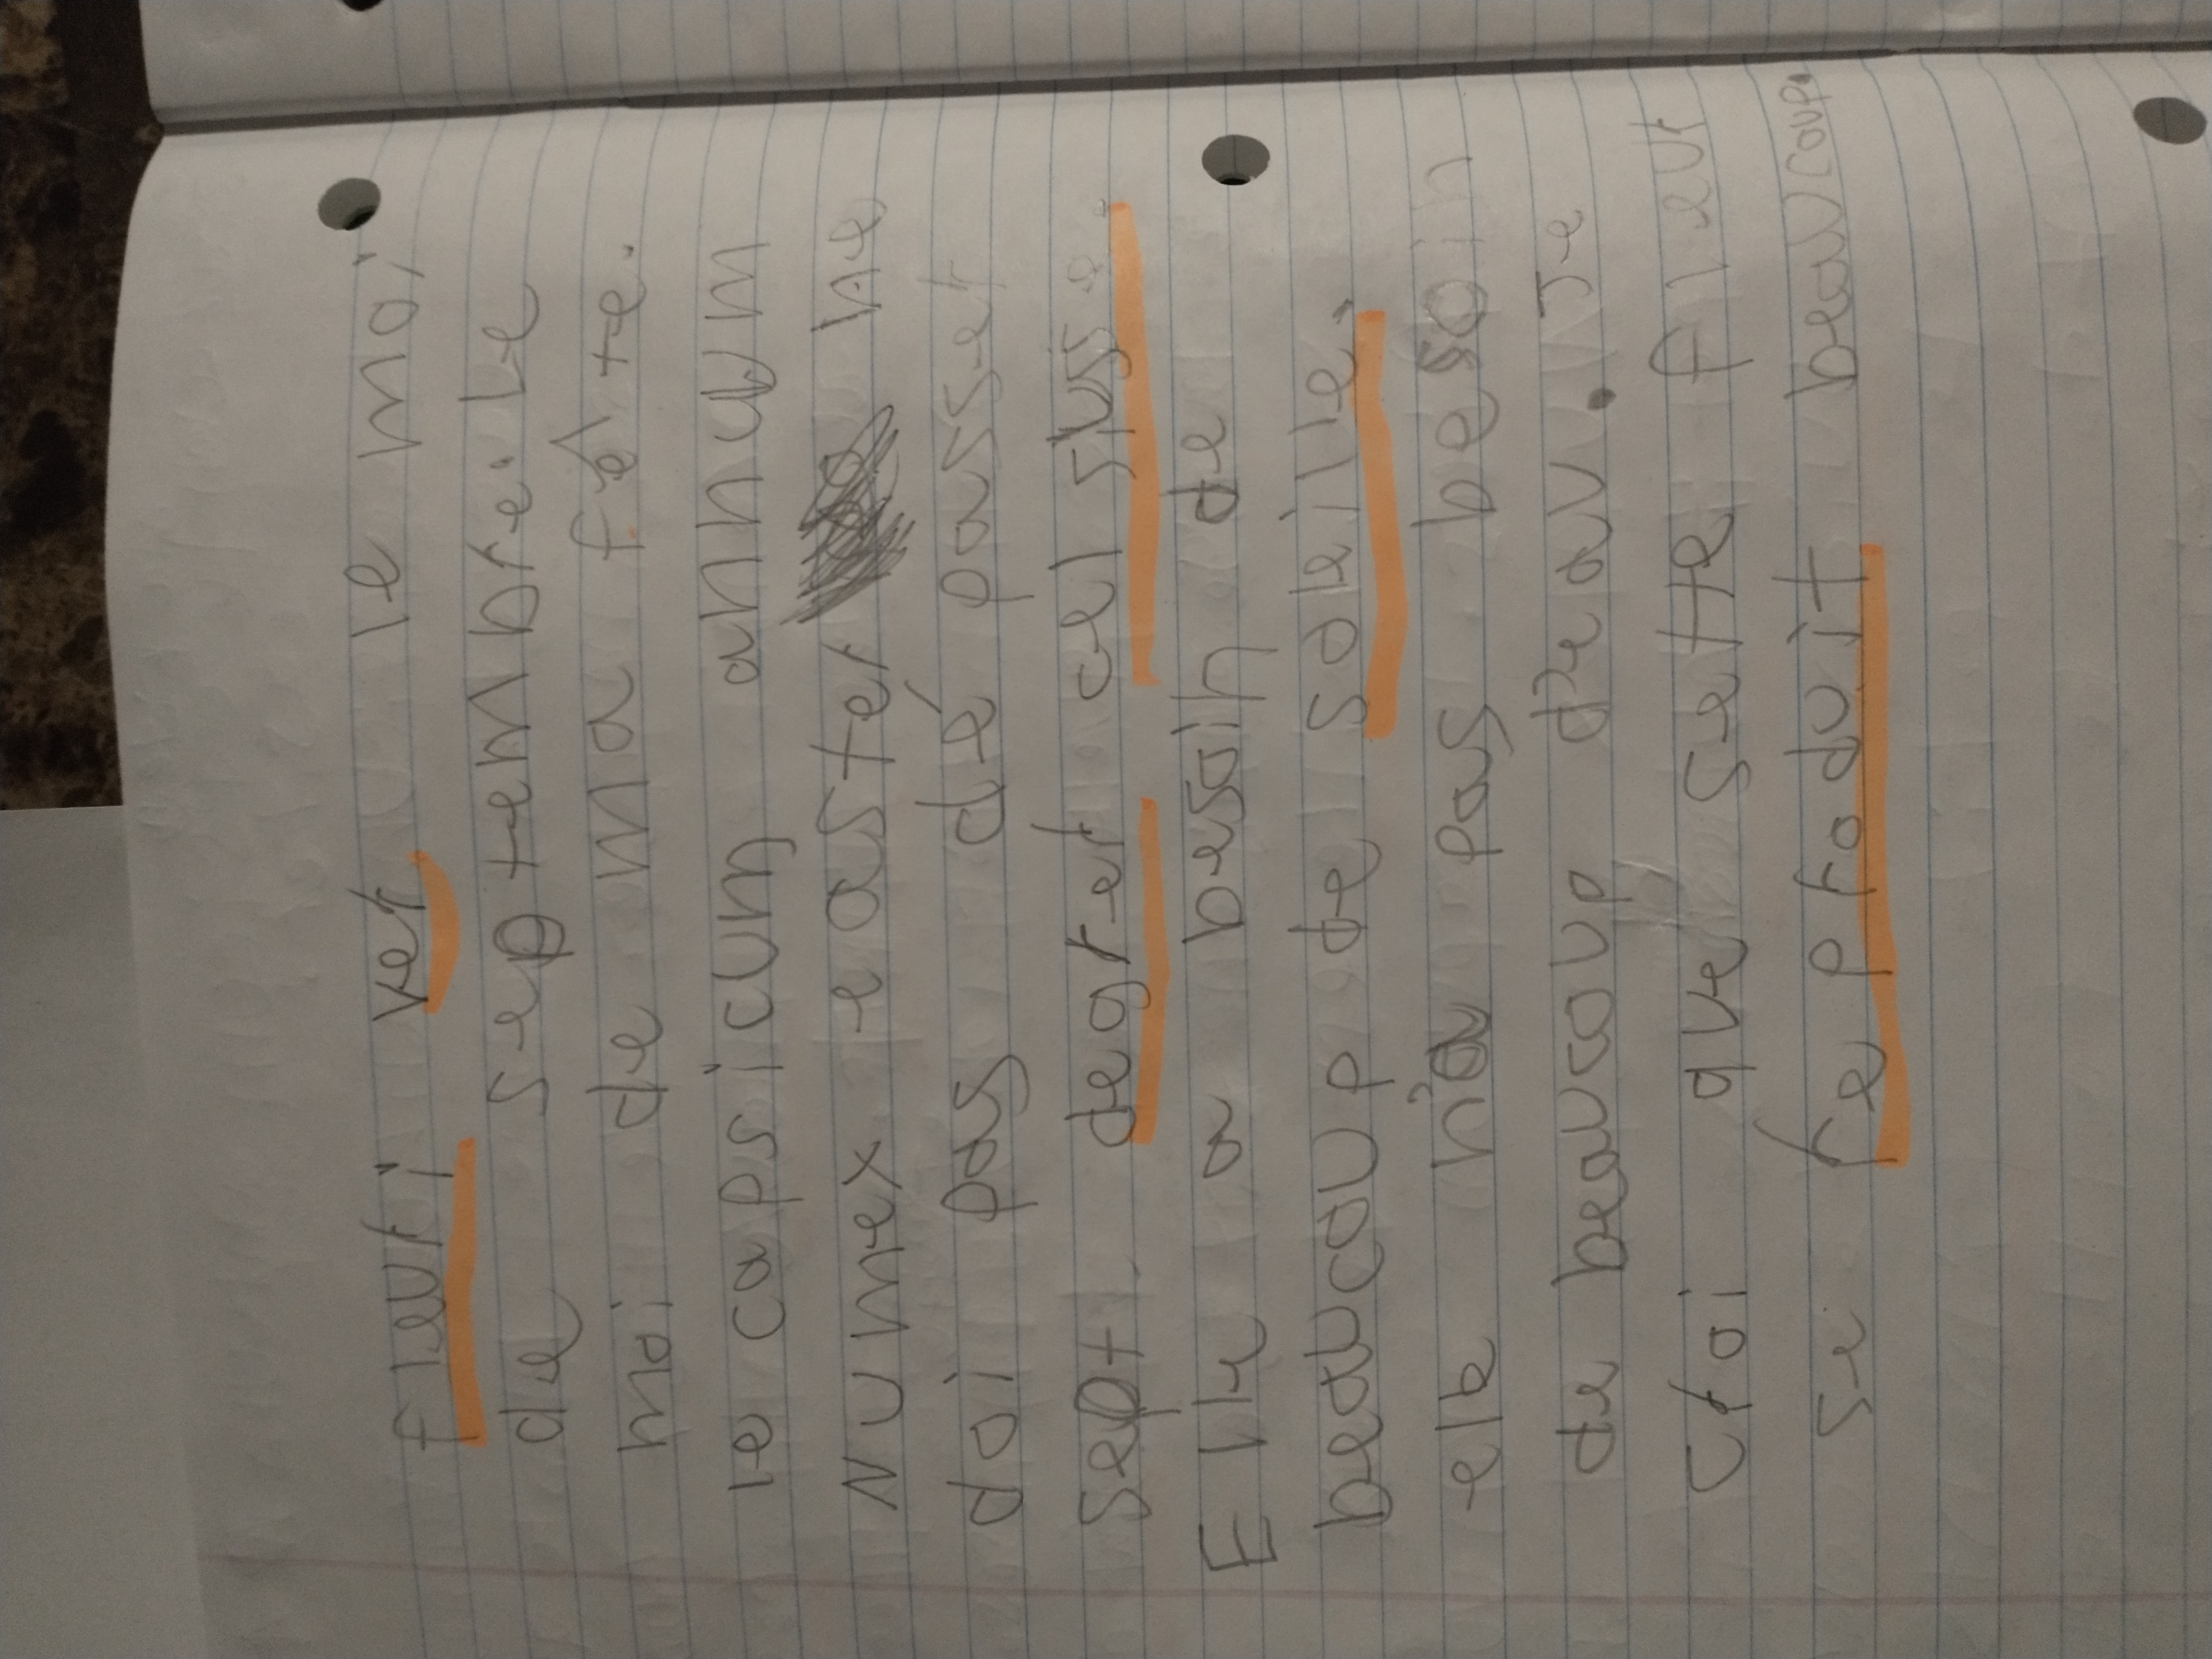 fleuri ver le moi
de septembre. Le
moi de ma fête.
le capsicum annoum
Numex easter ne
doi pas dé passer
sept degrer cel sius.
Elle a besoin de
beaucoup de soleille,
elle n'a pas besoin
de beaucoup d'eau. Je
croi que sette fleur
se re produit beaucoup.